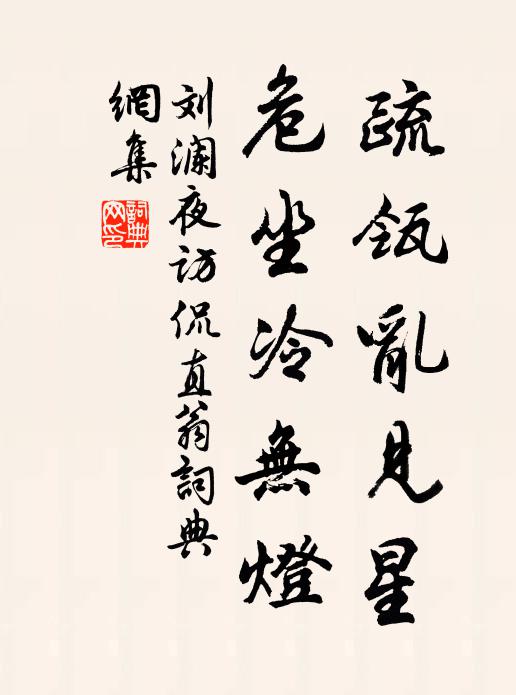 疏瓴亂見星
危坐冷無燈
刘澜夜访侃直翁詞典
網集
詞典网印